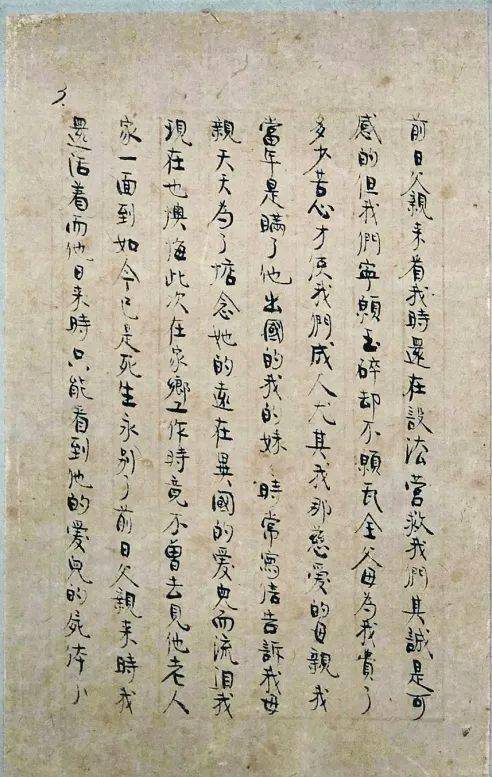 3.
前日父親来看我時還在設法营救我們其誠是可
感的但我們寧願玉碎却不願瓦全父母為我費了
多少苦心才使我們成人尤其我那慈爱的母親我
當年是瞒了他出國的我的妹時常寫信告訴我母
親天天為了惦念她的遠在異國的爱児而流泪我
現在也懊悔此次在家鄉工作時竟不曾去見他老人
家一面到如今已是死生永别了前日父親来時我
還活着而他日来時只能看到他的爱児的屍体